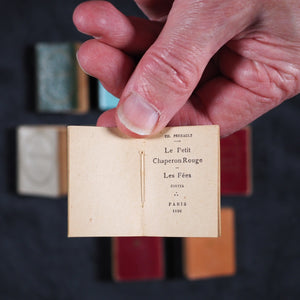 CH. PERRAULT
Le Petit
Chaperon Rouge
Les Fées
CONTES
PARIS